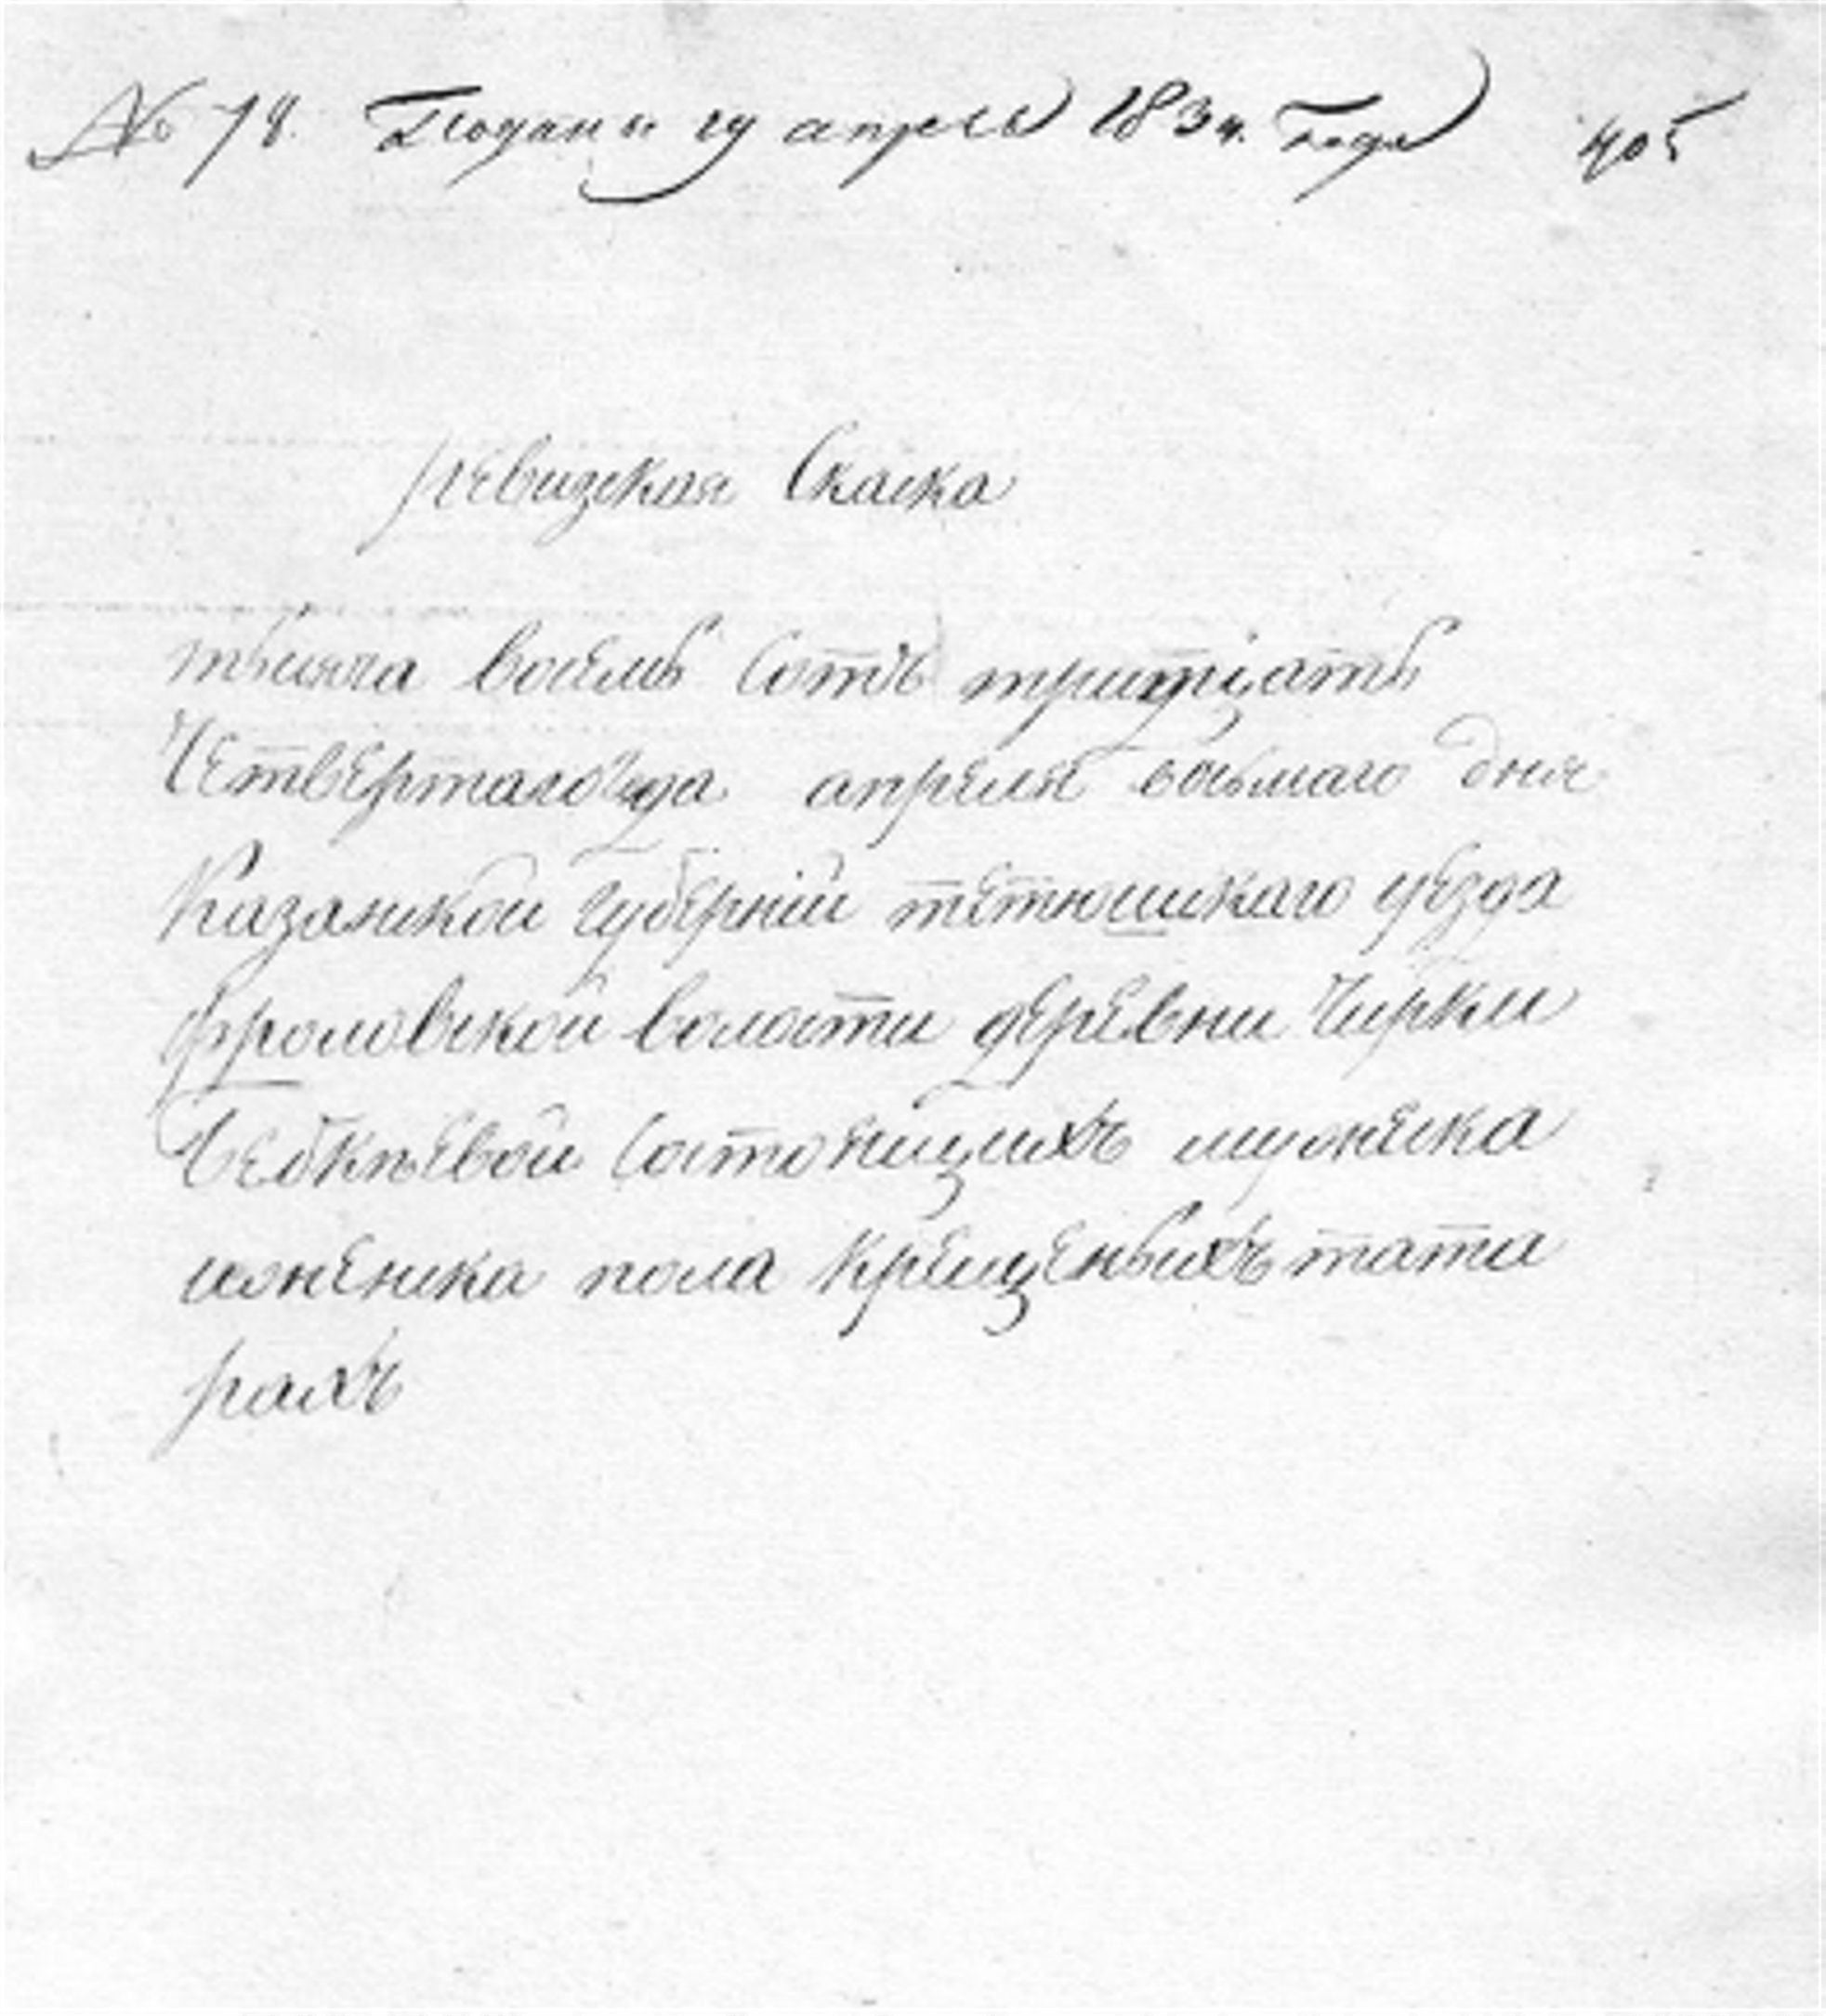 № 78. Подана 19 апреля 1834. Года 405
ревизская Скаска
тысяча восемь Сотъ тритцать
Четвертагогода апреля восьмаго дня
Казанской губерніи тетюшскаго уезда
фроловской волости деревни Чирки
состоящихъ мужеска
иженска пола Крещеныихъ тата
рахъ